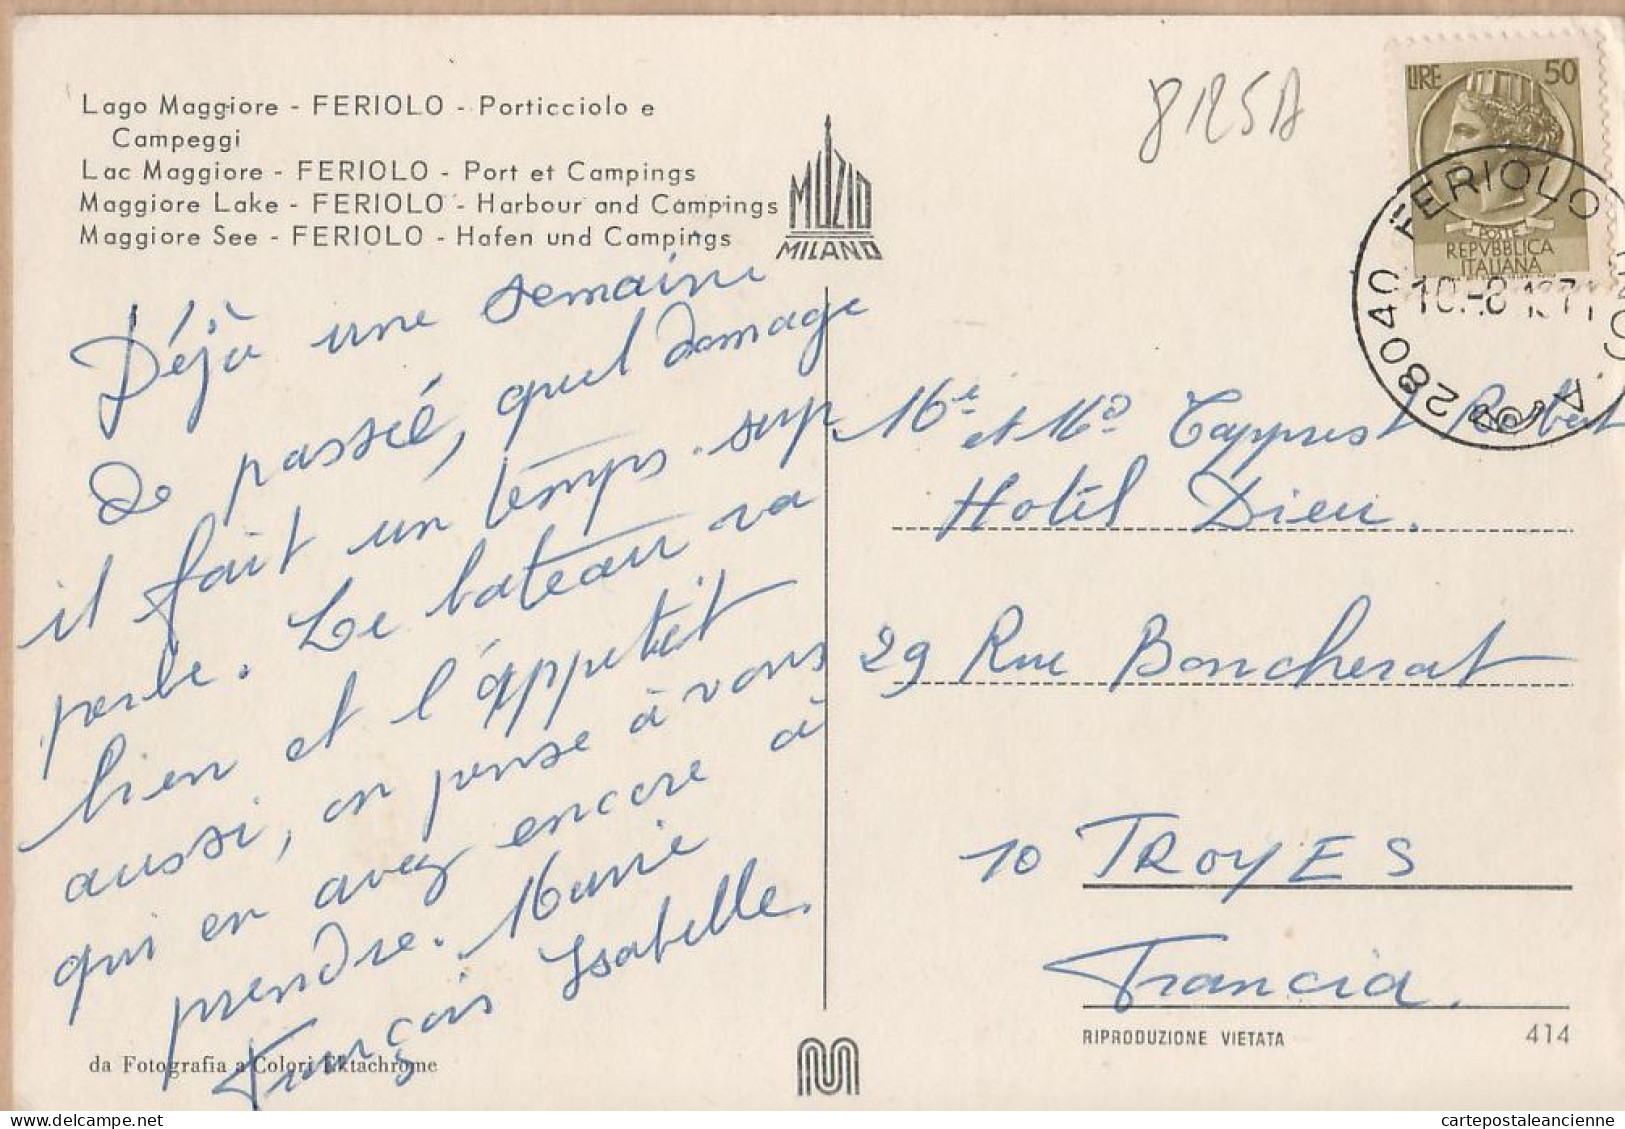 Lago Maggiore - FERIOLO - Porticciolo e
Campeggi
Lac Maggiore - FERIOLO - Port et Campings
Maggiore Lake - FERIOLO - Harbour and Campings
Maggiore See - FERIOLO - Hafen und Campings
MUZIO
MILANO
8125A
LIRE 50
POSTE
REPVBBLICA
ITALIANA
28040 FERIOLO
10.-8 1971
Déjà une semaine
de passée, quel domage
il fait un temps sup
perbe. Le bateau va
bien et l'appetit
aussi, on pense à vous
qui en avez encore à
prendre. Marie
François Isabelle.
Me et Md Robert
Hotel Dieu.
29 Rue Boncherat
10 TROYES
Francia.
da Fotografia a Colori Ektachrome
RIPRODUZIONE VIETATA
414
cartepostaleancienne